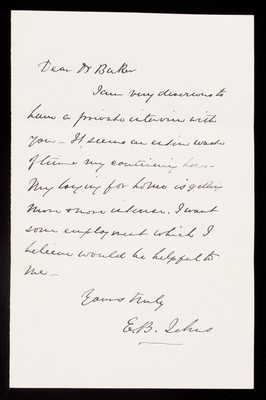 Dear Dr Baker
I am very desirous to
have a private interview with
you - It seems an entire waste
of time my continuing here -
My longing for home is getting
more & more intense. I want
some employment which I
believe would be helpful to
me -
Yours truly
E. B. Johns